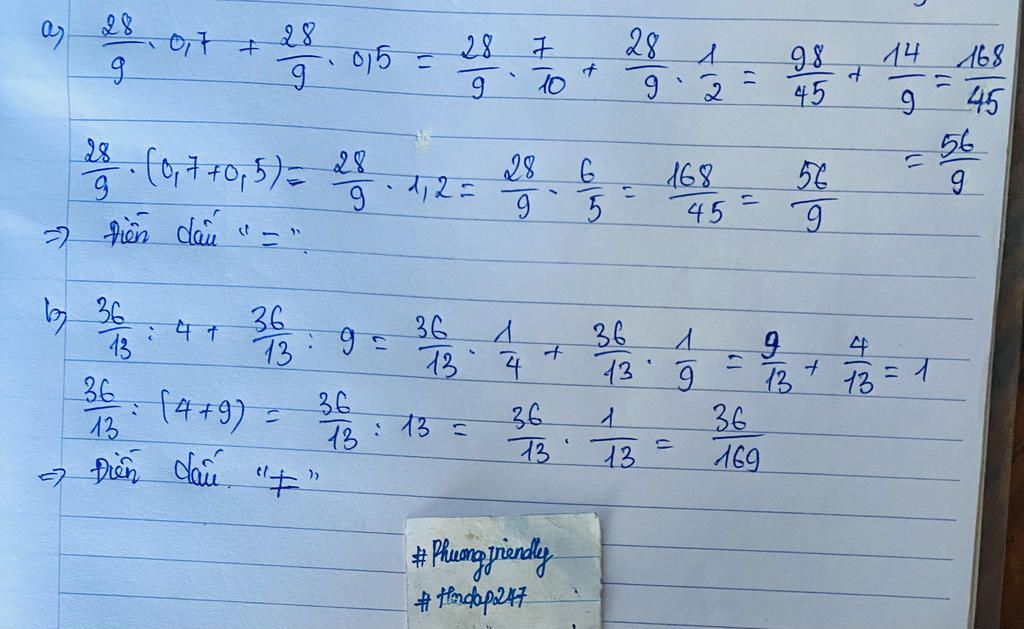 a) 28/9 . 0,7 + 28/9 . 0,5 = 28/9 . 7/10 + 28/9 . 1/2 = 98/45 + 14/9 = 168/45
= 56/9
28/9 . (0,7+0,5) = 28/9 . 1,2 = 28/9 . 6/5 = 168/45 = 56/9
=> Điền dấu "=".
b) 36/13 : 4 + 36/13 : 9 = 36/13 . 1/4 + 36/13 . 1/9 = 9/13 + 4/13 = 1
36/13 : (4+9) = 36/13 : 13 = 36/13 . 1/13 = 36/169
=> Điền dấu "≠"
#Phuongfriendly
#Hoidap247